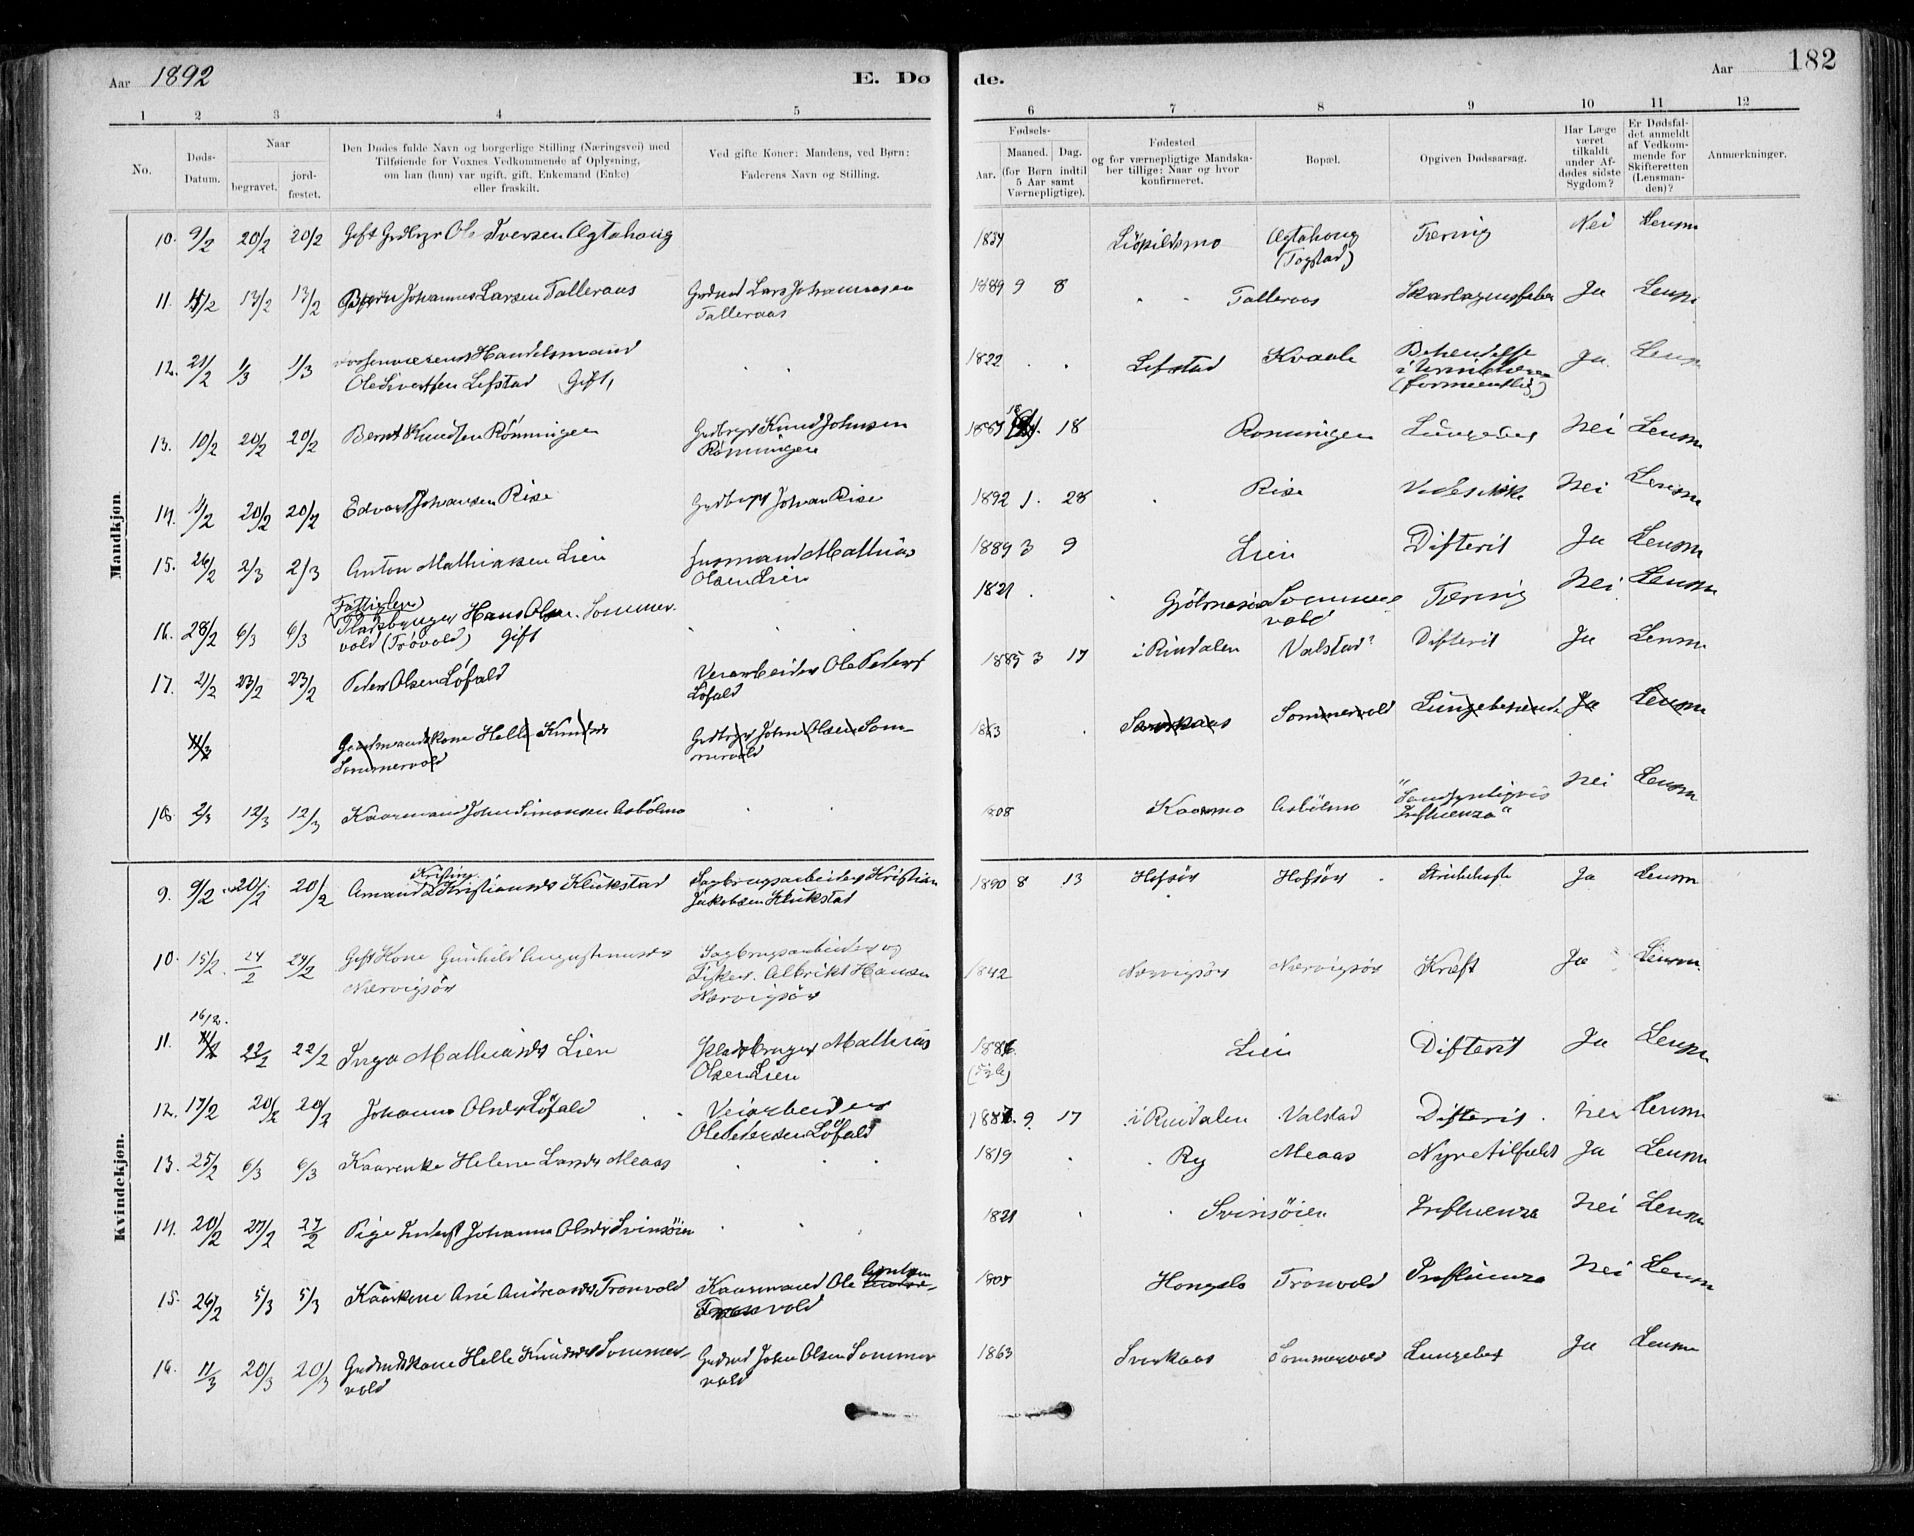 Aar 1892 E. Dø de. Aar 182
1 2 3 4 5 6 7 8 9 10 11 12
No.
Døds-Datum.
Naar
begravet.
jordfæstet.
Den Dødes fulde Navn og borgerlige Stilling (Næringsvei) med
Tilføiende for Voxnes Vedkommende af Oplysning,
om han (hun) var ugift, gift, Enkemand (Enke)
eller fraskilt.
Ved gifte Koner: Mandens, ved Børn:
Faderens Navn og Stilling.
Fødsels-
Aar.
Maaned. Dag.
(for Børn indtil
5 Aar samt
Værnepligtige).
Fødested
og for værnepligtige Mandska-
ber tillige: Naar og hvor
konfirmeret.
Bopæl.
Opgiven Dødsaarsag.
Har Læge
været
tilkaldt
under Af-
dødes sidste
Sygdom?
Er Dødsfal-
det anmeldt
af Vedkom-
mende for
Skifteretten
(Lensman-
den)?
Anmærkninger.
Mandkjøn.
10. 9/2 20/2 20/2 Gift Grdbrgr Ole Iversen Ægtahaug 1834 Ægtahaug Tæring Nei Lensm
(Togstad)
11. 13/2 13/2 Johannes Larsen Talleraas Grdmd Lars Johannesen 1889 9 8 Talleraas Skarlagensfeber Ja Lensm
Talleraas
12. 21/2 1/3 1/3 Handelsmand 1822 Lefstad Kvaale Ja Lensm
Ole Sivertsen Lefstad Gift,
(formentlig)
13. 10/2 20/2 20/2 Bernt Knudsen Rönningen Grdbrgr Knud Johnsen 18 Rönningen Lungebet Nei Lensm
Rönningen
14. 20/2 20/2 Edvart Johansen Rise Grdbrgr Johan Rise 1892 1. 28 Rise Nei Lensm
15. 26/2 2/3 2/3 Anton Mathiasen Lien Husmand Mathias 1889 3 9 Lien Difterit Ja Lensm
Olsen Lien
Fattiglem
16. 28/2 6/3 6/3 Pladsbruger Hans Olsen Sommer- 1821 Sommer- Tæring Nei Lensm
vold (Trövold) Gift vold
17. 2/2 23/2 23/2 Peder Olsen Löfald Veiarbeider Ole Peders 1885 3 17 i Rindalen Valstad Difterit Ja Lensm
Löfald
11/3 Grdmandskone Helle Knudsdr Grdbrgr John Olsen Som- Sommervold Lungebetændelse Ja Lensm
Sommervold mervold
18. 2/3 12/3 12/3 Kaarmand John Simonsen Asbölmo 1808 Kaarmo Asbölmo "Sandsynligvis Nei Lensm
Influenza"
Kvindekjøn.
Kristine
9. 9/2 20/2 20/2 Amanda Kristiansdr Klukstad Sagbrugsarbeider Kristian 1890 8 13 Hofsör Hofsör Strubehoste Ja Lensm
Jakobsen Klukstad
10. 15/2 24/2 24/2 Gift Kone Gunhild Augustinusdr Sagbrugsarbeider og 1842 Nærvigsör Nærvigsör Kræft Ja Lensm.
Nærvigsör Albrikt Hansen
Nærvigsör
16/2.
11. 22/2 22/2 Inga Mathiasdr Lien Pladsbruger Mathias Lien Difterit Ja Lensm
Olsen Lien
12. 17/2 20/2 20/2 Johanna Olsdr Löfald Veiarbeider 9 17 i Rindalen Valstad Difterit Nei Lensm
Ole Pedersen Löfald
13. 25/2 6/3 6/3 Kaarenke Helene Larsdr Meaas 1819 Ry Meaas Nyretilfælde Ja Lensm
14. 20/2 27/2 27/2 Pige Johanna Olsdr Svinsöien 1821 Svinsöien Influenza Nei Lensm
15. 26/2 5/3 5/3 Kaarkone Ane Andreasdr Tronvold Kaarmand Ole Arntsen 1805 Tronvold Influenza Nei Lensm
Tronvold
16. 11/3 20/3 20/3 Grdmdskone Helle Knudsdr Sommer- Grdmd John Olsen Sommer 1863 Sverkaas Sommervold Lungebet Ja Lensm
vold vold